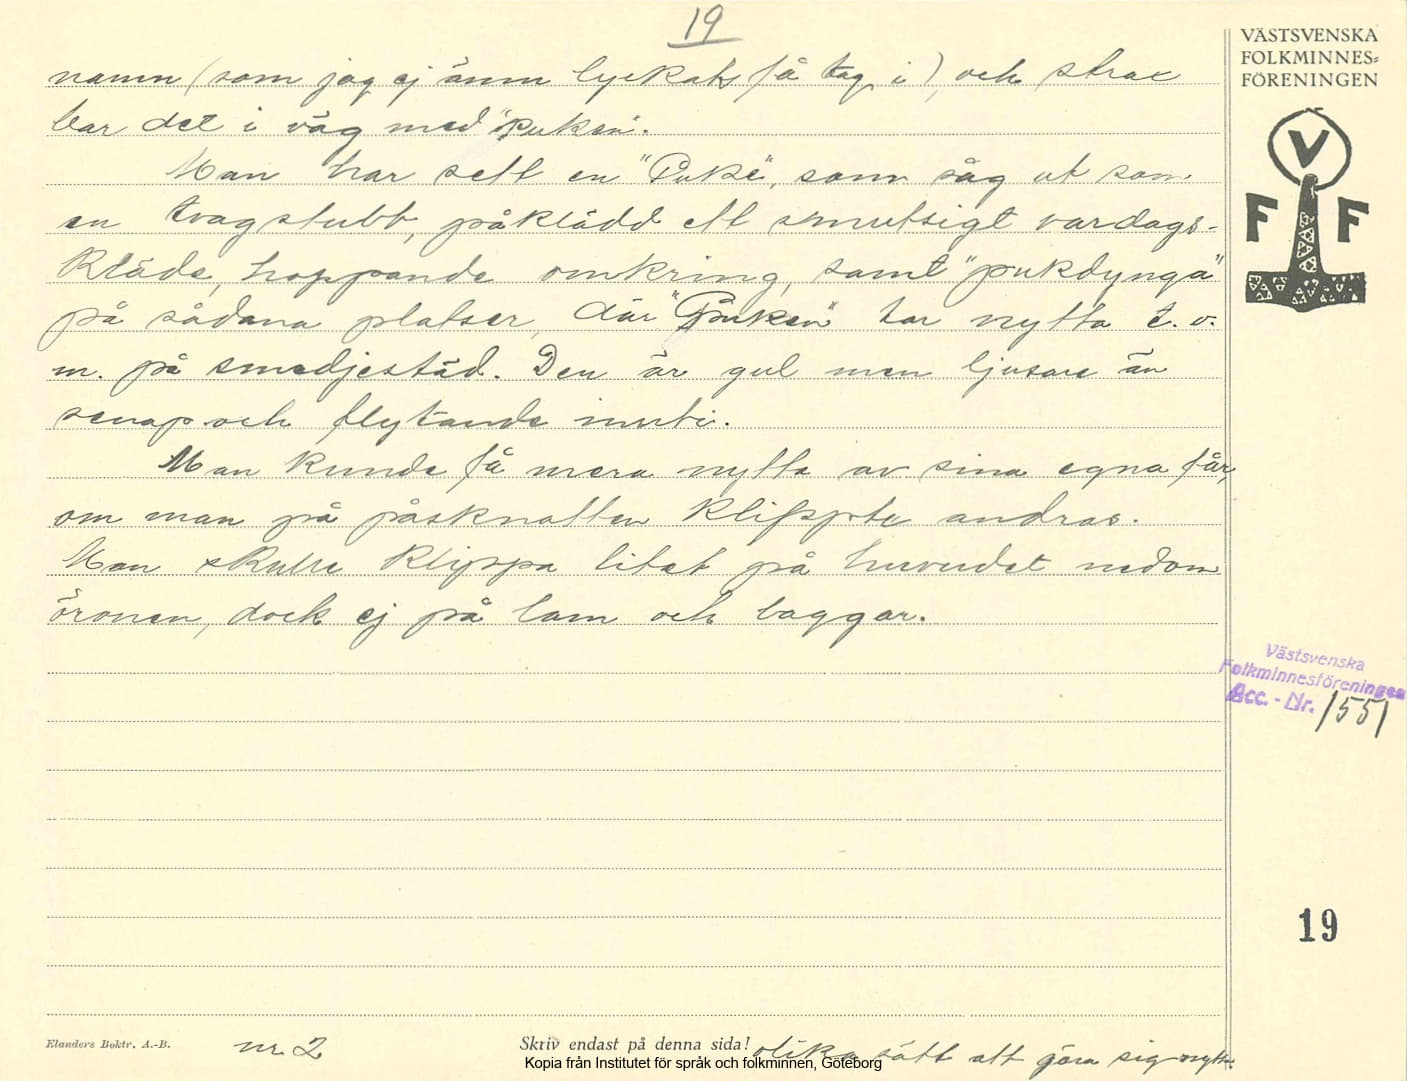 19
VÄSTSVENSKA
FOLKMINNES=
FÖRENINGEN
V
F F
namn (som jag ej ännu lyckats få tag i), och strax
bar det i väg med "Puken".
Man har sett en "Puke", som såg ut som
en tvagstubb, påklädd ett smutsigt vardags-
kläde, hoppande omkring, samt "pukdynga"
på sådana platser, där "Puken" har nytta t. o.
m. på smedjestäd. Den är gul men ljusare än
senap och flytande inuti.
Man kunde få mera nytta av sina egna får,
om man på påsknatten klippte andras.
Man skulle klippa litet på huvudet nedom
öronen, dock ej på lam och baggar.
Västsvenska
Folkminnesföreningen
Acc. - Nr. 1551
19
Elanders Boktr. A.-B.
nr 2
Skriv endast på denna sida!
olika sätt att göra sig nytta
Kopia från Institutet för språk och folkminnen, Göteborg